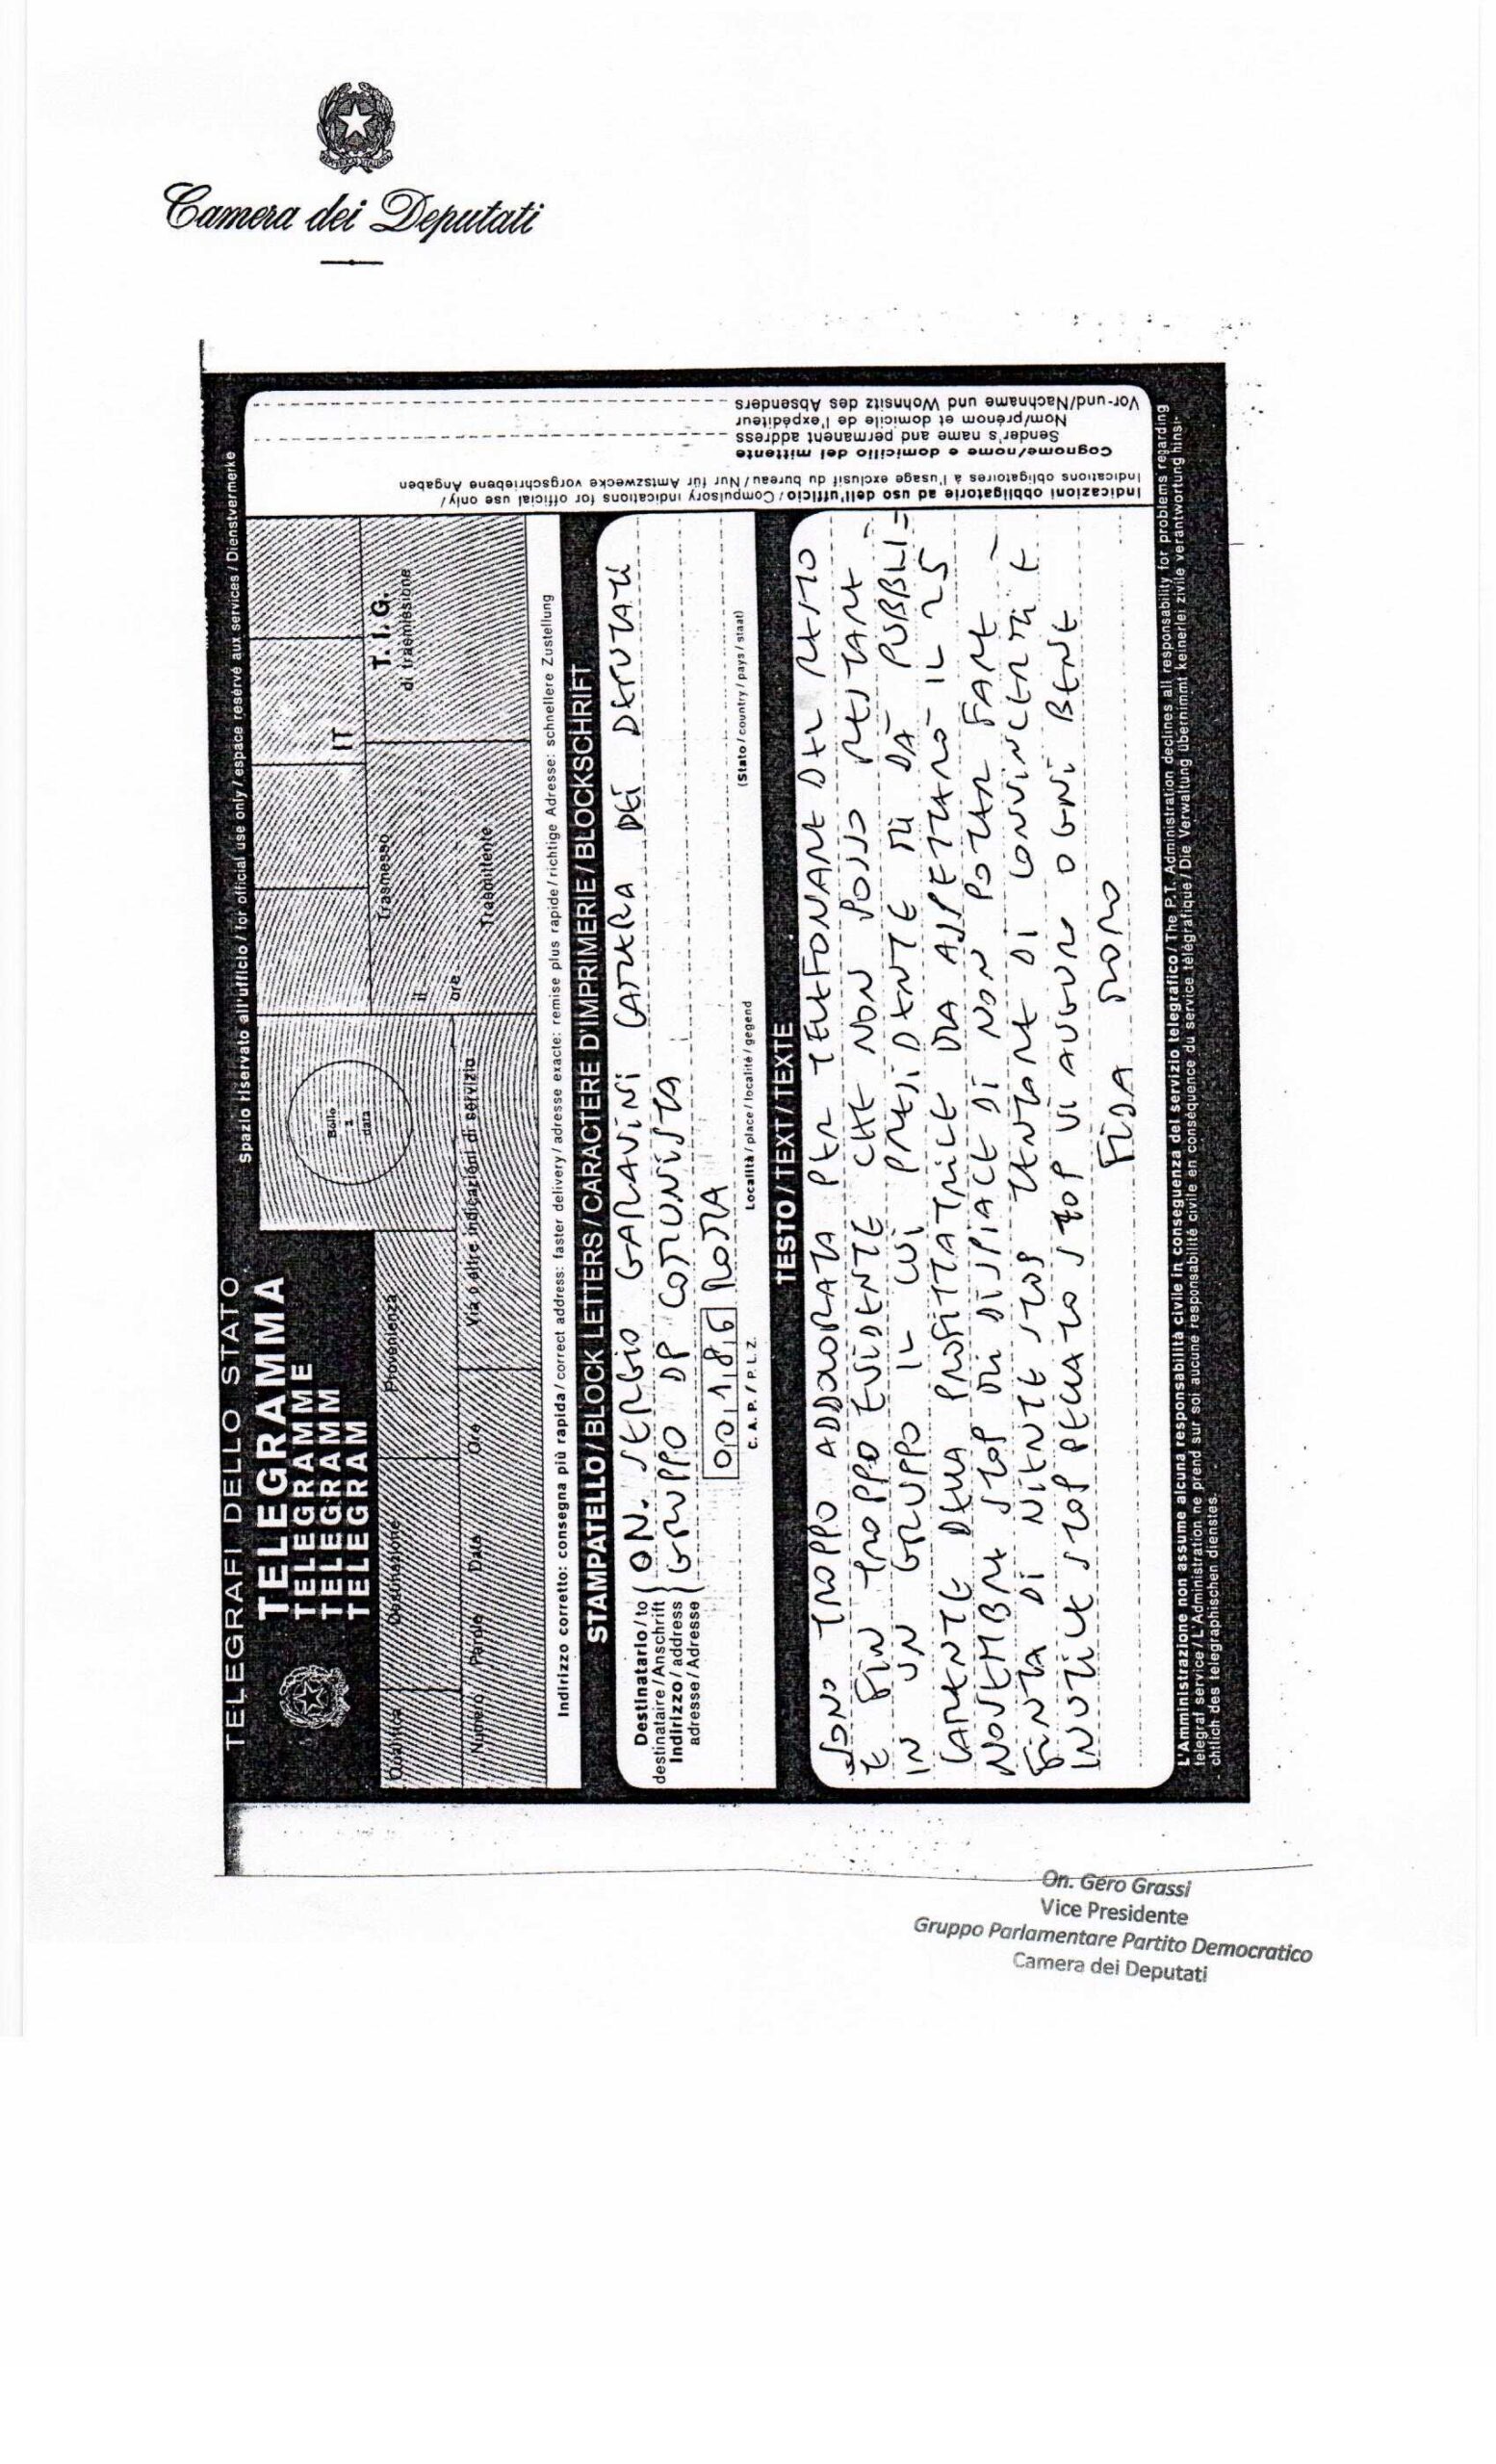 Camera dei Deputati
TELEGRAFI DELLO STATO
TELEGRAMMA
TELEGRAMME
TELEGRAMM
TELEGRAM
Spazio riservato all'ufficio / for official use only / espace reservé aux services / Dienstvermerke
Bollo
a
data
IT
T. I. G.
di trasmissione
Qualifica
Destinazione
Provenienza
Trasmesso
il
ore
Numero
Parole
Data
Ore
Via o altre indicazioni di servizio
Trasmittente
Indirizzo corretto: consegna più rapida / correct address: faster delivery / adresse exacte: remise plus rapide / richtige Adresse: schnellere Zustellung
STAMPATELLO / BLOCK LETTERS / CARACTERE D'IMPRIMERIE / BLOCKSCHRIFT
Destinatario / to
destinataire / Anschrift
Indirizzo / address
adresse / Adresse
ON. SERGIO GARAVINI CAMERA DEI DEPUTATI
GRUPPO DP COMUNISTA
00186 ROMA
C. A. P. / P. L. Z.
Località / place / localité / gegend
(Stato / country / pays / staat)
TESTO / TEXT / TEXTE
SONO TROPPO ADDOLORATA PER TELEFONARE DEL RESTO
E FIN TROPPO EVIDENTE CHE NON POSSO RESTARE
IN UN GRUPPO IL CUI PRESIDENTE MI DÀ PUBBLI=
CAMENTE DELLA PROFITTATRICE MA ASPETTERÒ IL 25
NOVEMBRE STOP MI DISPIACE DI NON POTER FARE
FINTA DI NIENTE STOP TENTARE DI CONVINCERMI È
INUTILE STOP PECCATO STOP VI AUGURO OGNI BENE
FIDA MORO
L'Amministrazione non assume alcuna responsabilità civile in conseguenza del servizio telegrafico / The P.T. Administration declines all responsability for problems regarding
telegraf service / L'Administration ne prend sur soi aucune responsabilité civile en conséquence du service télégrafique / Die Verwaltung übernimmt keinerlei zivile verantwortung hinsi-
chtlich des telegraphischen dienstes.
Indicazioni obbligatorie ad uso dell'ufficio / Compulsory indications for official use only /
Indications obligatoires à l'usage exclusif du bureau / Nur für Amtszwecke vorgschriebene Angaben
Cognome/nome e domicilio del mittente
Sender's name and permanent address
Nom/prénom et domicile de l'expéditeur
Vor-und/Nachname und Wohnsitz des Absenders
On. Gero Grassi
Vice Presidente
Gruppo Parlamentare Partito Democratico
Camera dei Deputati